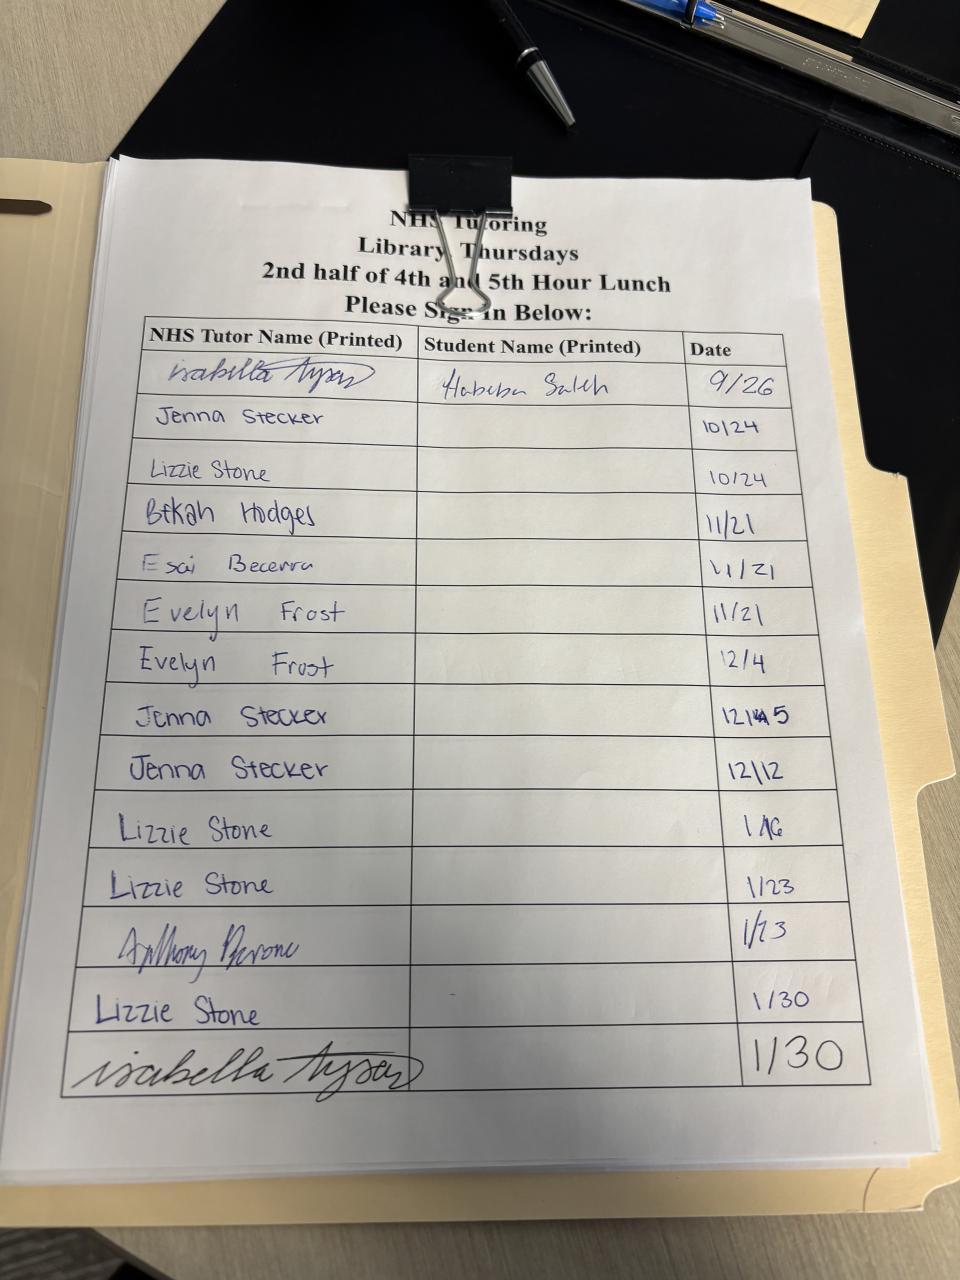 NHS Tutoring
Library Thursdays
2nd half of 4th and 5th Hour Lunch
Please Sign In Below:
NHS Tutor Name (Printed) Student Name (Printed) Date
isabella tyson Habeba Saleh 9/26
Jenna Stecker 10/24
Lizzie Stone 10/24
Bekah Hodges 11/21
Esai Becerra 11/21
Evelyn Frost 11/21
Evelyn Frost 12/4
Jenna Stecker 12/5
Jenna Stecker 12/12
Lizzie Stone 1/16
Lizzie Stone 1/23
Anthony 1/23
Lizzie Stone 1/30
isabella tyson 1/30